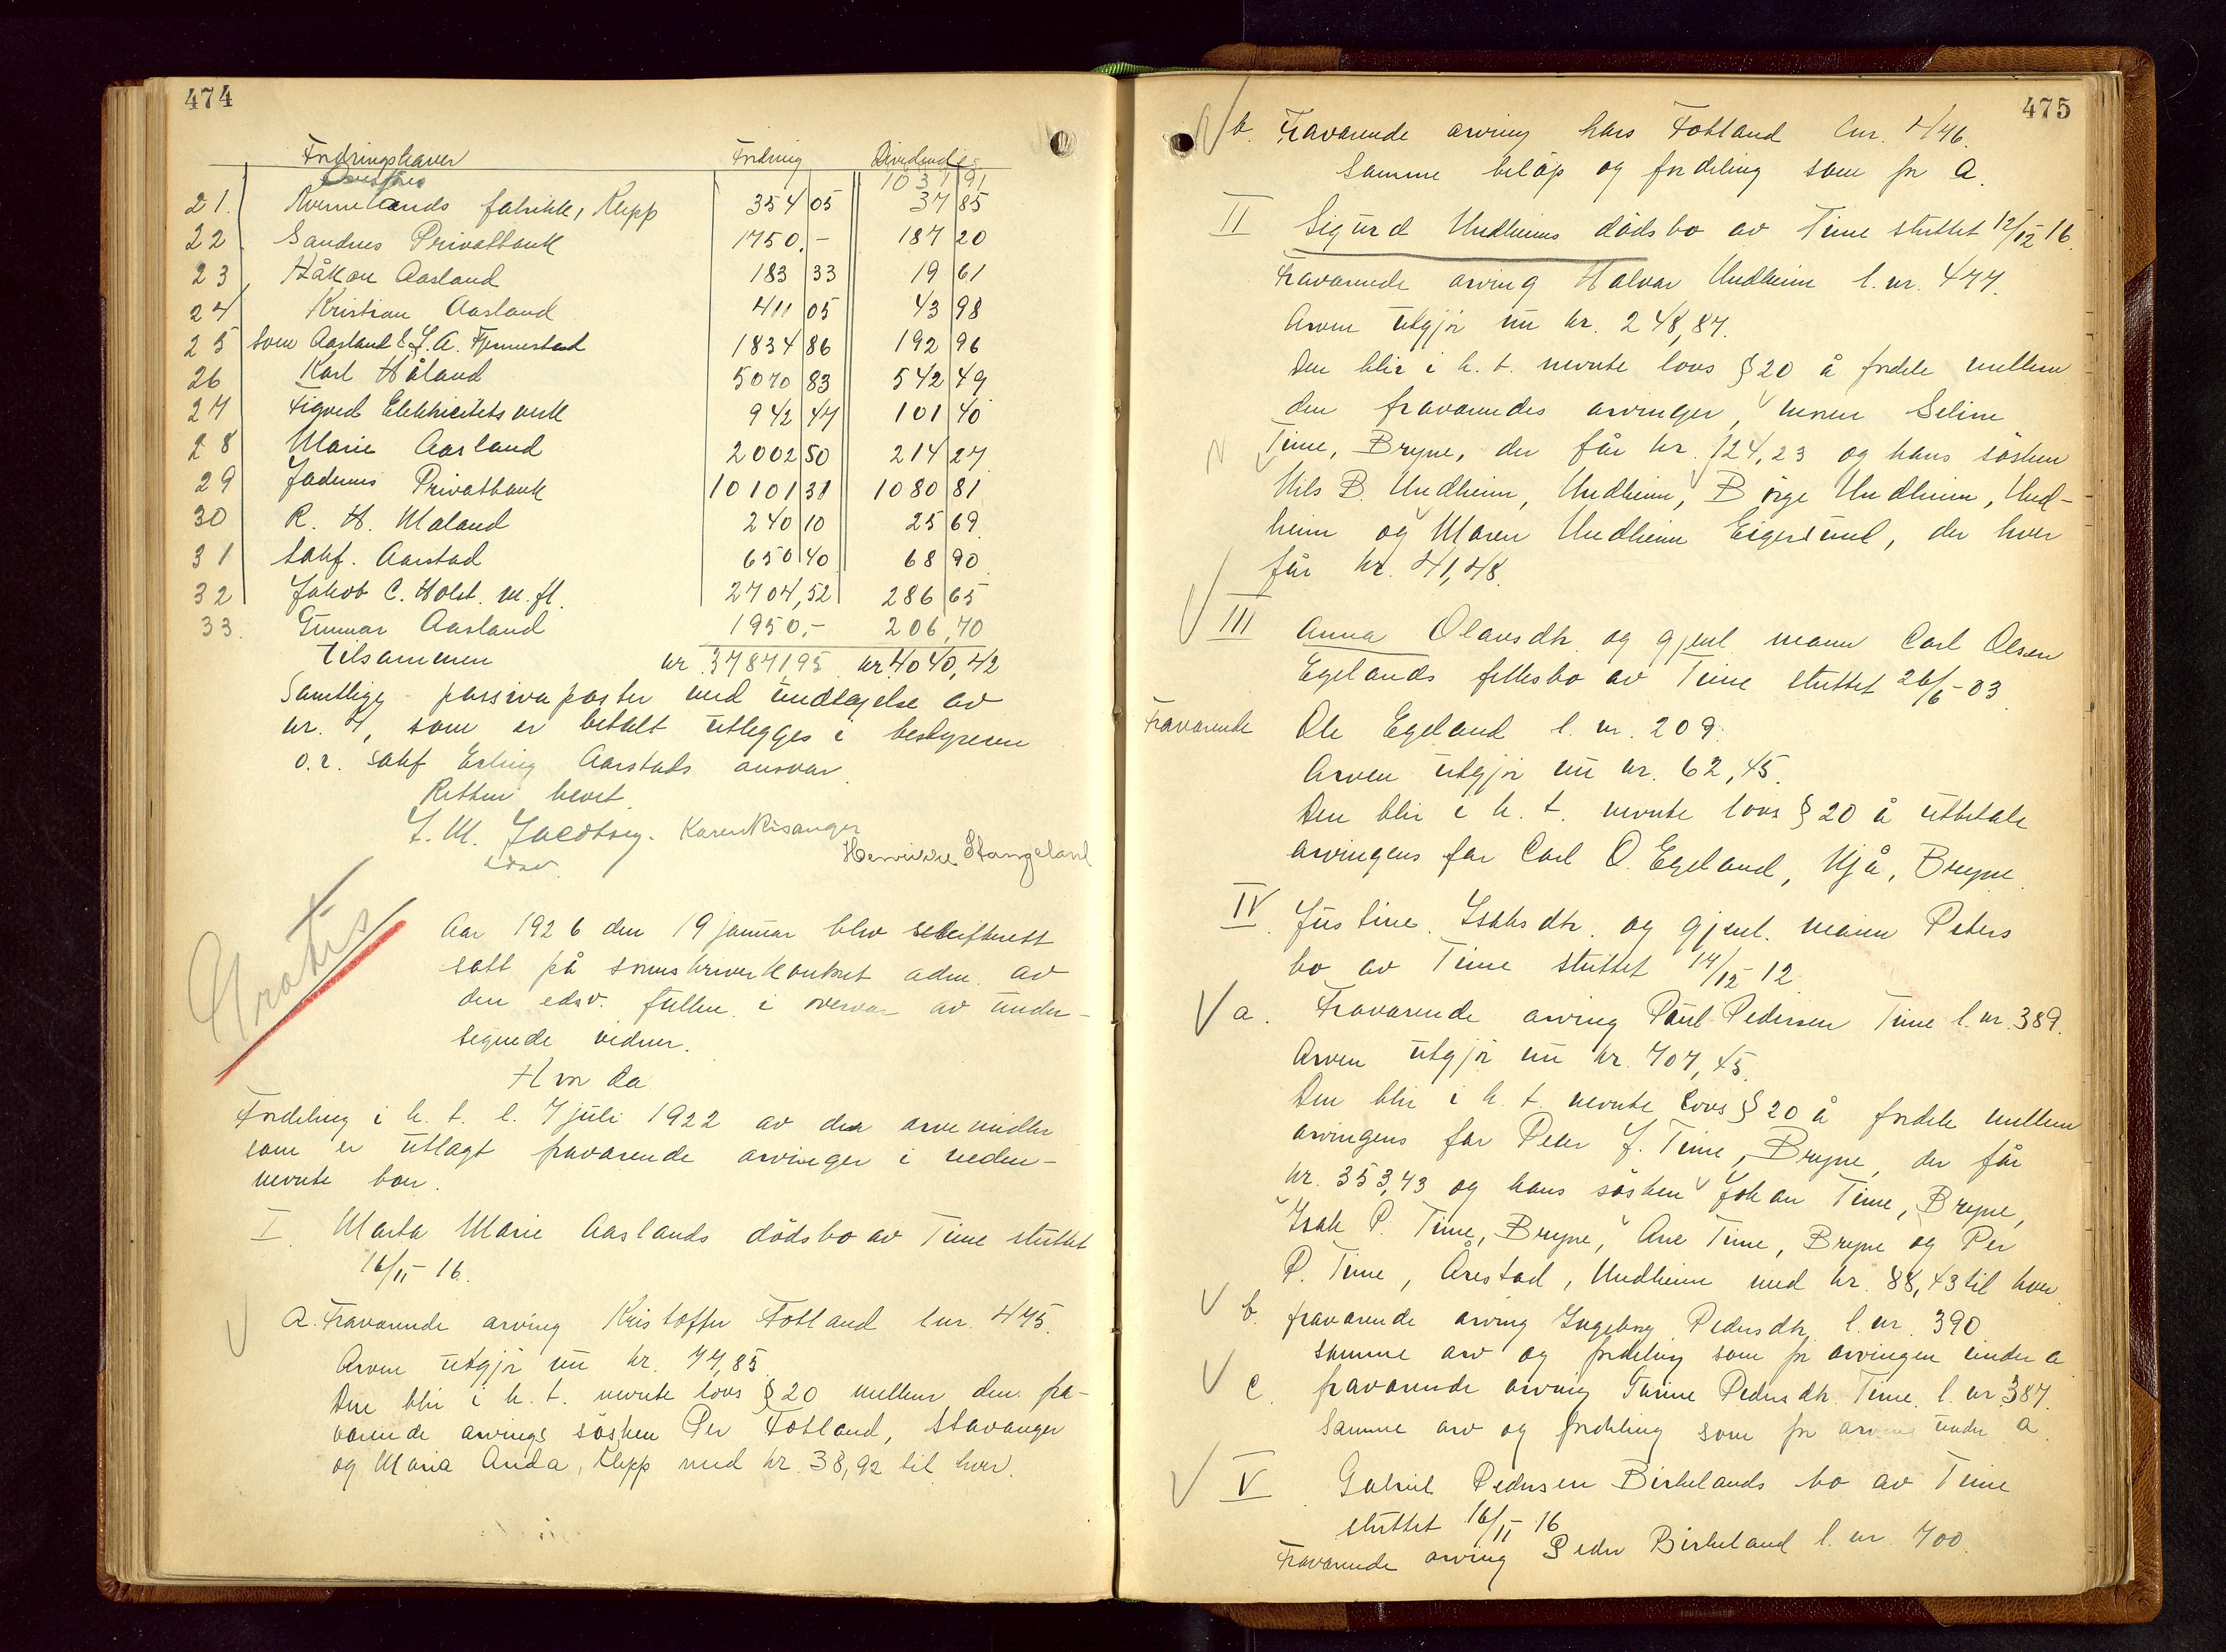 474
Fordringshaver Fordring Dividende
Overføres 1037 91
21. Kvernelands fabrikk, Klepp 354 05 37 85
22. Sandnes Privatbank 1750,- 187 20
23, Håkon Aasland 183 33 19 61
24 Kristian Aasland 411 05 43 98
25 Sven Aasland & J. A. Fjermestad 1834 86 192 96
26 Karl Håland 5070 83 542 49
27 Figved Elektricitetsverk 942 47 101 40
28 Marie Aasland 2002 50 214 27
29 Jæderens Privatbank 10101 31 1080 81
30 R. H. Maland 240 10 25 69
31 Sakf. Aarstad 650 40 68 90
32 Jakob C. Holst. m. fl. 2704,52 286 65
33. Gunnar Aasland 1950,- 206,70
tilsammen kr. 37871,95 kr. 4040,42
Samtlige passivaposter med undtagelse av
nr. 7, som er betalt utlegges i bestyreren
o.r. sakf Erling Aarstads ansvar.
Retten hevet.
J. M. Jacobsen. Karen Risanger
edsv. Henrikke Stangeland
Gratis
Aar 1926 den 19 januar blev skifterett
satt på sorenskriverkontoret adm. av
den edsv. fullm. i overvær av under-
tegnede vidner.
Hvor da
Fordeling i h. t. l. 7 juli 1922 av de arvemidler
som er utlagt fraværende arvinger i neden-
nevnte boer.
I. Marta Marie Aaslands dødsbo av Time sluttet
16/11-16.
a. Fraværende arving Kristoffer Fotland lnr. 475.
Arven utgjør nu kr. 77,85
Den blir i h. t. nevnte lovs § 20 mellem den fra-
værende arvings søsken Per Fotland, Stavanger
og Maria Anda, Klepp med kr. 38,92 til hver.
475
b. Fraværende arving Lars Fotland lnr. 476.
Samme beløp og fordeling som for a.
II Sigurd Undheims dødsbo av Time sluttet 12/12-16.
Fraværende arving Halvar Undheim l. nr. 477.
Arven utgjør nu kr. 248,87.
Den blir i h. t. nevnte lovs § 20 å fordele mellem
den fraværendes arvinger, moren Seline
Time, Bryne, der får kr. 124,23 og hans søsken
Nils B. Undheim, Undheim, Børge Undheim, Und-
heim og Maren Undheim Eigersund, der hver
får kr. 41,48.
III Anna Olausdtr. og gjenl. mann Carl Olsen
Egelands fellesbo av Time sluttet 26/6-03.
Fraværende Ole Egeland l. nr. 209.
Arven utgjør nu kr. 62,45.
Den blir i h. t. nevnte lovs § 20 å utbetale
arvingens far Carl O. Egeland, Njå, Bryne.
IV. Justine Isaksdtr. og gjenl. mann Peters
bo av Time sluttet 14/12-12
a. Fraværende arving Paul Pedersen Time l. nr. 389.
Arven utgjør nu kr. 707,45.
Den blir i h. t. nevnte lovs § 20 å fordele mellem
arvingens far Peder J. Time, Bryne, der får
kr. 353,43 og hans søsken Johan Time, Bryne,
Isak P. Time, Bryne, Ane Time, Bryne og Per
P. Time, Årestad, Undheim med kr. 88,43 til hver.
b. fraværende arving Ingeborg Pedersdtr. l. nr. 390
samme arv og fordeling som for arvingen under a
c. fraværende arving Turine Pedersdtr. Time l. nr. 387.
Samme arv og fordeling som for arving under a.
V. Gabriel Pedersen Birkelands bo av Time
sluttet 16/11-16
Fraværende arving Peder Birkeland l. nr. 700.